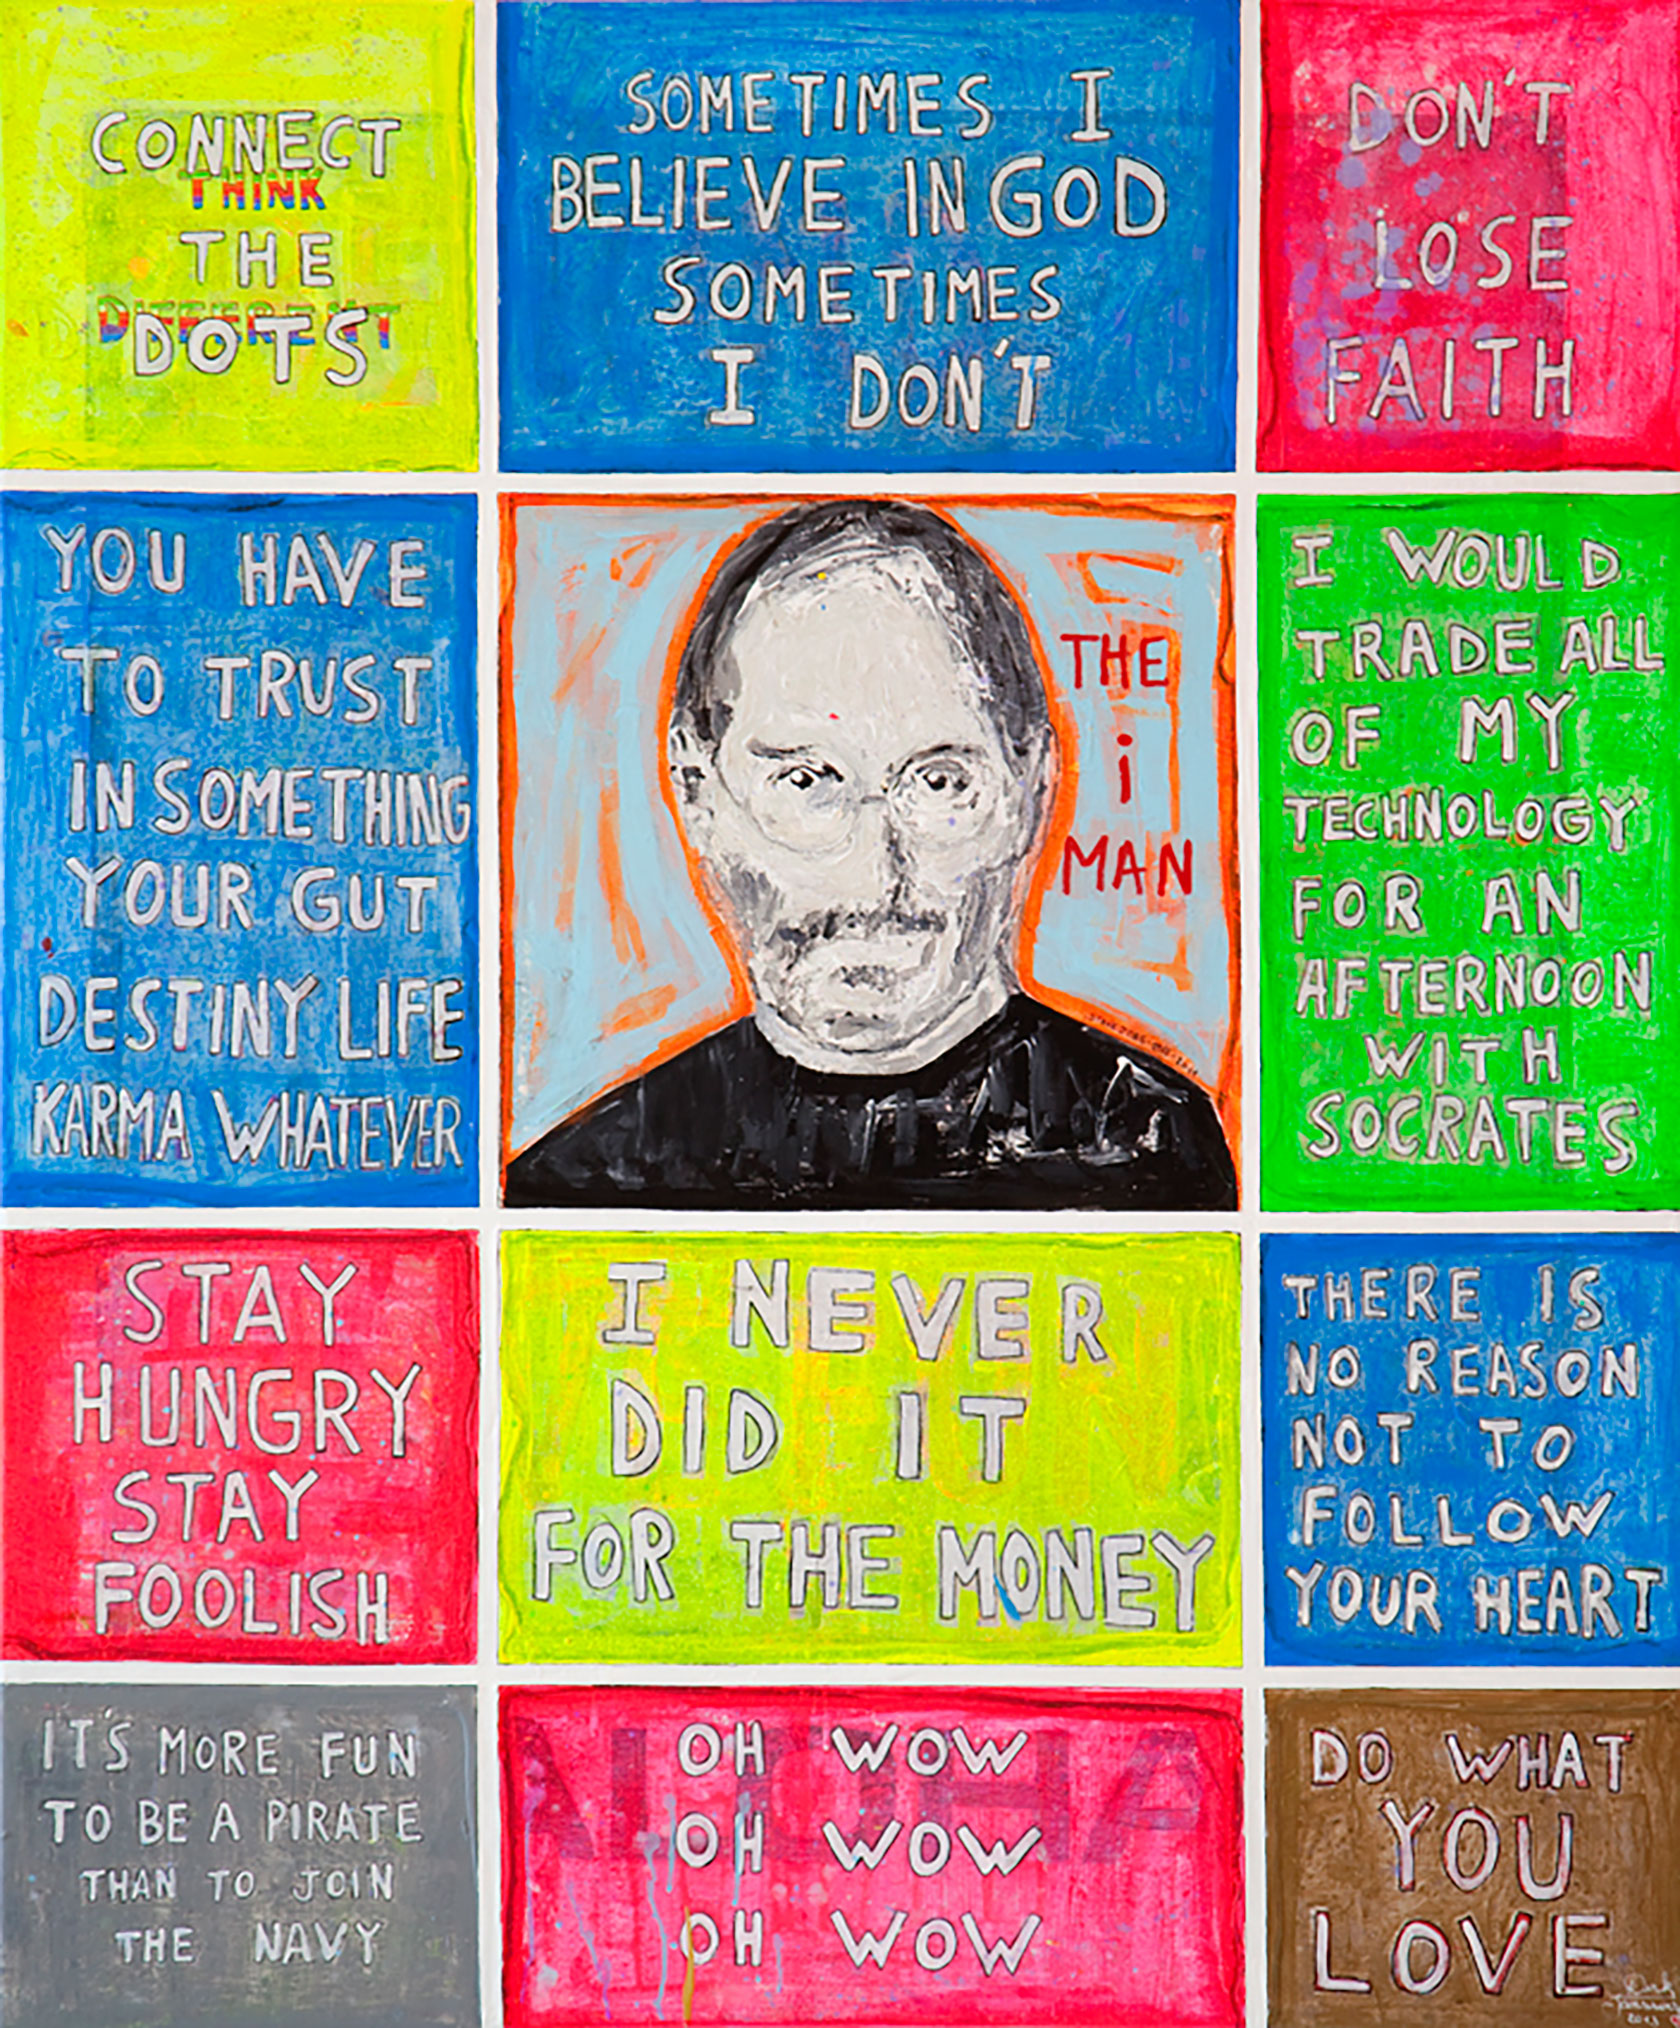 CONNECT
THINK
THE
DIFFERENT
DOTS
SOMETIMES I
BELIEVE IN GOD
SOMETIMES
I DON'T
DON'T
LOSE
FAITH
YOU HAVE
TO TRUST
IN SOMETHING
YOUR GUT
DESTINY LIFE
KARMA WHATEVER
THE
i
MAN
I WOULD
TRADE ALL
OF MY
TECHNOLOGY
FOR AN
AFTERNOON
WITH
SOCRATES
STAY
HUNGRY
STAY
FOOLISH
I NEVER
DID IT
FOR THE MONEY
THERE IS
NO REASON
NOT TO
FOLLOW
YOUR HEART
IT'S MORE FUN
TO BE A PIRATE
THAN TO JOIN
THE NAVY
ALOHA
OH WOW
OH WOW
OH WOW
DO WHAT
YOU
LOVE
2013